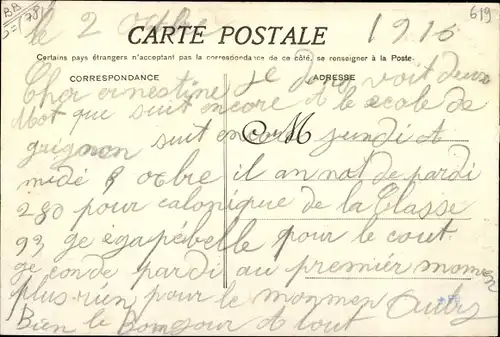 le 2 octbre 1915
619
CARTE POSTALE
Certains pays étrangers n'acceptant pas la correspondance de ce côté, se renseigner à la Poste.
CORRESPONDANCE
ADRESSE
Cher ernestine Je voit deux
Mot que suit encore a le ecole de
grignon suit encore jundi a
M
midé 9 octbre il an nat de pardi
280 pour calonique de la Classe
93 ge pour le cout
ge conde pardi au premier momen
plus rien pour le monmen
Bien le Bonsour a tout